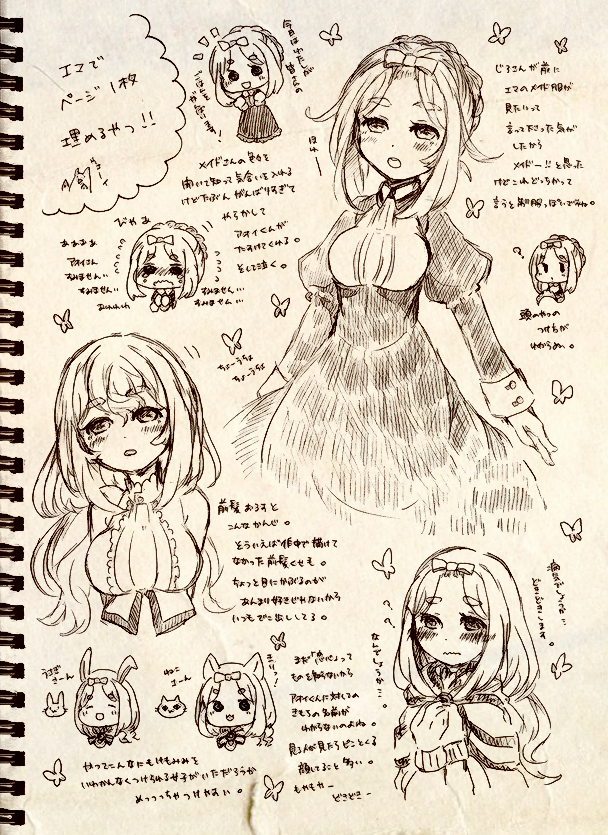 エマで
ページ1枚
埋めるやつ!!
今日はわたしが
メイドさんの
聞いて知って気合いを入れる
けどたぶん がんばりすぎて
やらかして
アオイくんが
たすけてくれる。
そして泣く。
ぴゃあ
ああああ
アオイさん
すみません…
すみません…
すみません…
すみません…
じろさんが前に
エマのメイド服が
見たいって
言って下さった気が
したから
メイドー!!と思った
けどこれどっちかって
言うと制服っぽいですね。
?
頭のやつの
つけ方が
わからぬい。
ちょーうちょ
ちょーうちょ
前髪おろすと
こんなかんじ。
そういえば作中で描けて
なかった前髪くせも。
ちょっと目にかぶるのが
あんまり好きじゃないから
いつもでこ出ししてる。
??
なんでしょうか…。
病気でしょうか…
どきどきします。
まだ「恋心」って
ものを知らないから
アオイくんに対しての
きもちの名前が
わからないのよね。
見る人が見たらピンとくる
顔してること多い。
もやもやー
どきどきー
うさぎ
さーん
ねこ
さーん
やってこんなにもけもみみを
いわかんなくつけられる女子がいただろうか
めっっっちゃつけやすい